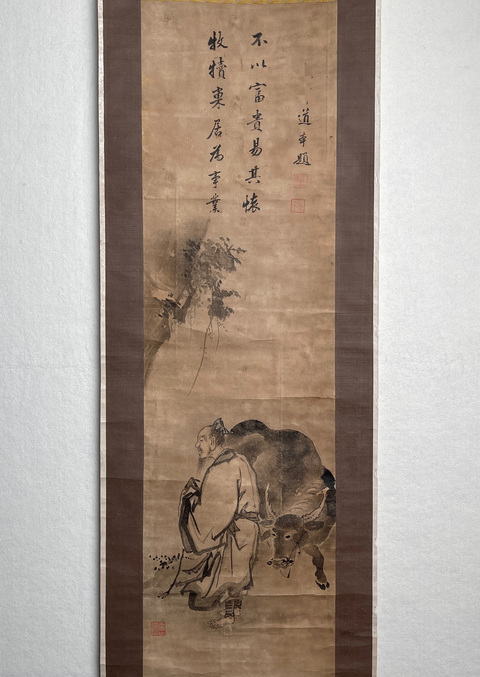 牧犢巣居為事業
不以富貴易其懷
道本題